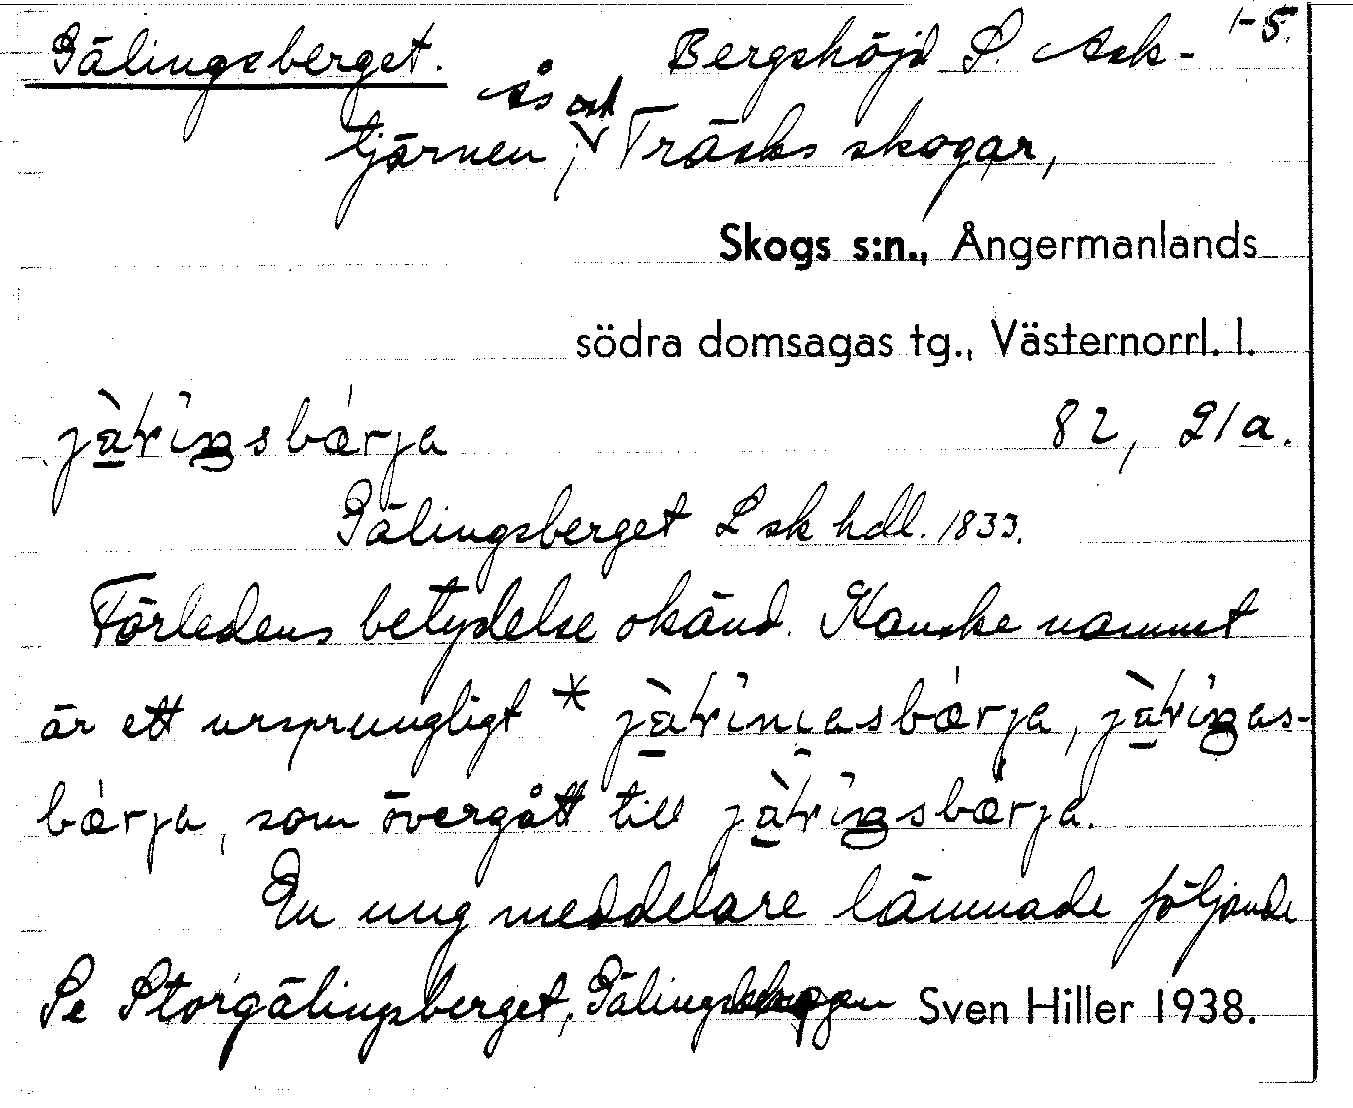 Gälingsberget. Bergshöjd S. Ask- 1-5.
tjärnen, Ås och Träsks skogar,
Skogs s:n., Ångermanlands
södra domsagas tg., Västernorrl. l.
82, 21a.
Gälingsberget L sk hdl. 1833.
Förledens betydelse okänd. Kanske namnet
är ett ursprungligt *
som övergått till
En ung meddelare lämnade följande
Se Storgälingsberget, Sven Hiller 1938.